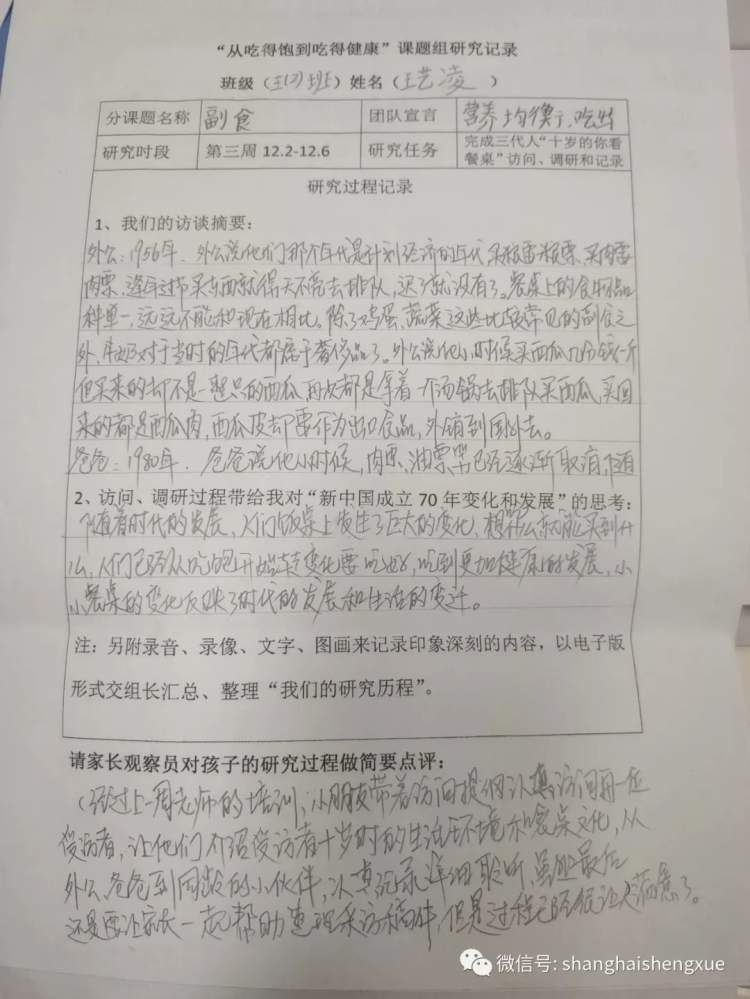 “从吃得饱到吃得健康”课题组研究记录
班级（ 班）姓名（王艺凌 ）
分课题名称 副食 团队宣言 营养均衡，吃出
研究时段 第三周 12.2-12.6 研究任务 完成三代人“十岁的你看餐桌”访问、调研和记录
研究过程记录
1、我们的访谈摘要：
外公：1956年．外公说他们那个年代是计划经济的年代，买粮需粮票，买肉需
肉票，逢年过节买东西就得天不亮去排队，迟了就没有了。餐桌上的食物品
种单一，远远不能和现在相比。除了鸡蛋、蔬菜这些比较常见的副食之
外，牛奶对于当时的年代都属于奢侈品了。外公说他小时候买西瓜几分钱一斤
但买来的却不是一整只的西瓜，每次都是拿着一个汤锅去排队买西瓜，买回
来的都是西瓜肉，西瓜皮却要作为出口食品，外销到国外去。
爸爸：1980年．爸爸说他小时候，肉票，油票 已经逐渐取消，随
2、访问、调研过程带给我对“新中国成立 70 年变化和发展”的思考：
随着时代的发展，人们饭桌上发生了巨大的变化，想什么就能买到什
么，人们已经从吃饱开始转变化要吃好，吃到更加健康上的发展，小
小餐桌的变化反映了时代的发展和生活的变迁。
注：另附录音、录像、文字、图画来记录印象深刻的内容，以电子版
形式交组长汇总、整理“我们的研究历程”。
请家长观察员对孩子的研究过程做简要点评：
经过上一周老师的培训，小朋友带着访问提纲认真访问每一位
受访者，让他们介绍受访者十岁时的生活环境和餐桌文化，从
外公、爸爸到同龄的小伙伴，认真记录详细聆听，虽然最后
还是要让家长一起帮助整理采访稿件，但是过程已经很让人满意了。
微信号: shanghaishengxue